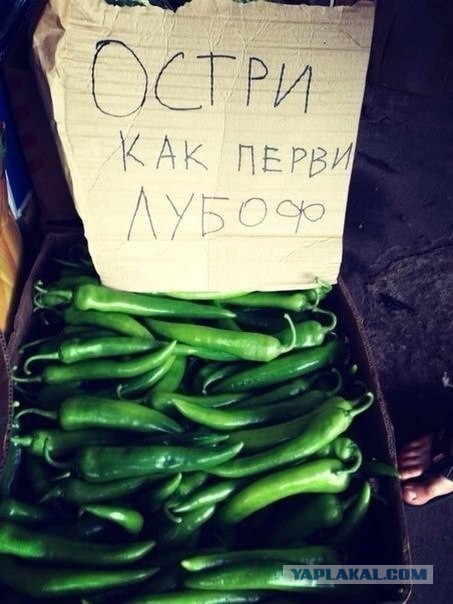 ОСТРИ
КАК ПЕРВИ
ЛУБОФ
YAPLAKAL.COM